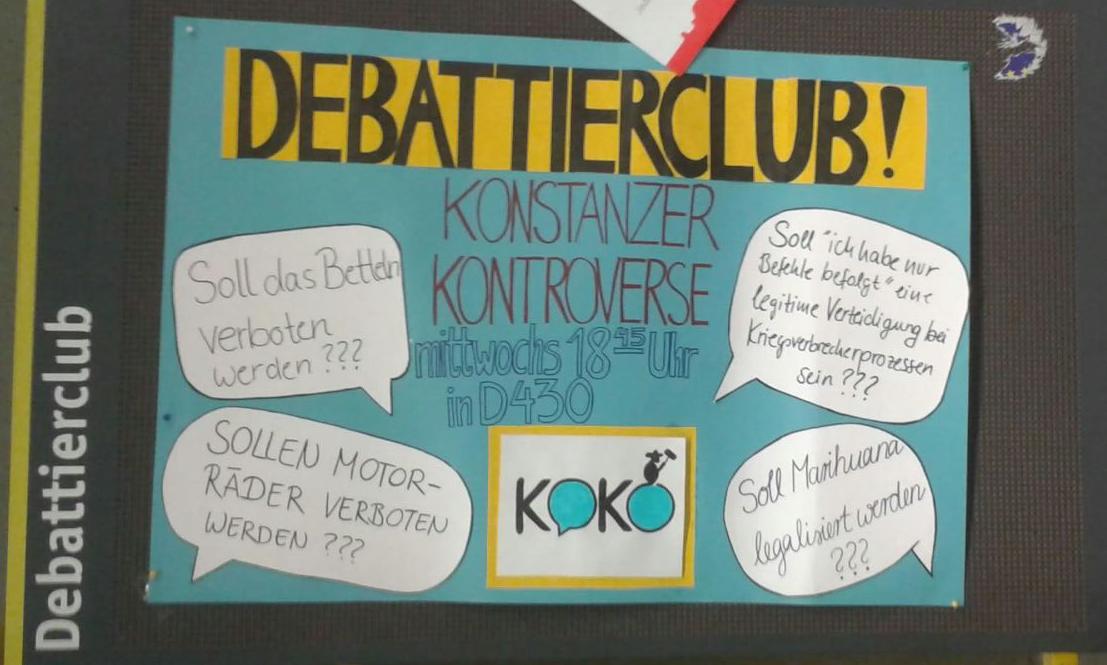 DEBATTIERCLUB!
KONSTANZER
KONTROVERSE
mittwochs 18 45 Uhr
in D430
Soll das Betteln
verboten
werden ???
Soll "ich habe nur
Befehle befolgt" eine
legitime Verteidigung bei
Kriegsverbrecherprozessen
sein ???
SOLLEN MOTOR-
RÄDER VERBOTEN
WERDEN ???
KOKO
Soll Marihuana
legalisiert werden
???
Debattierclub